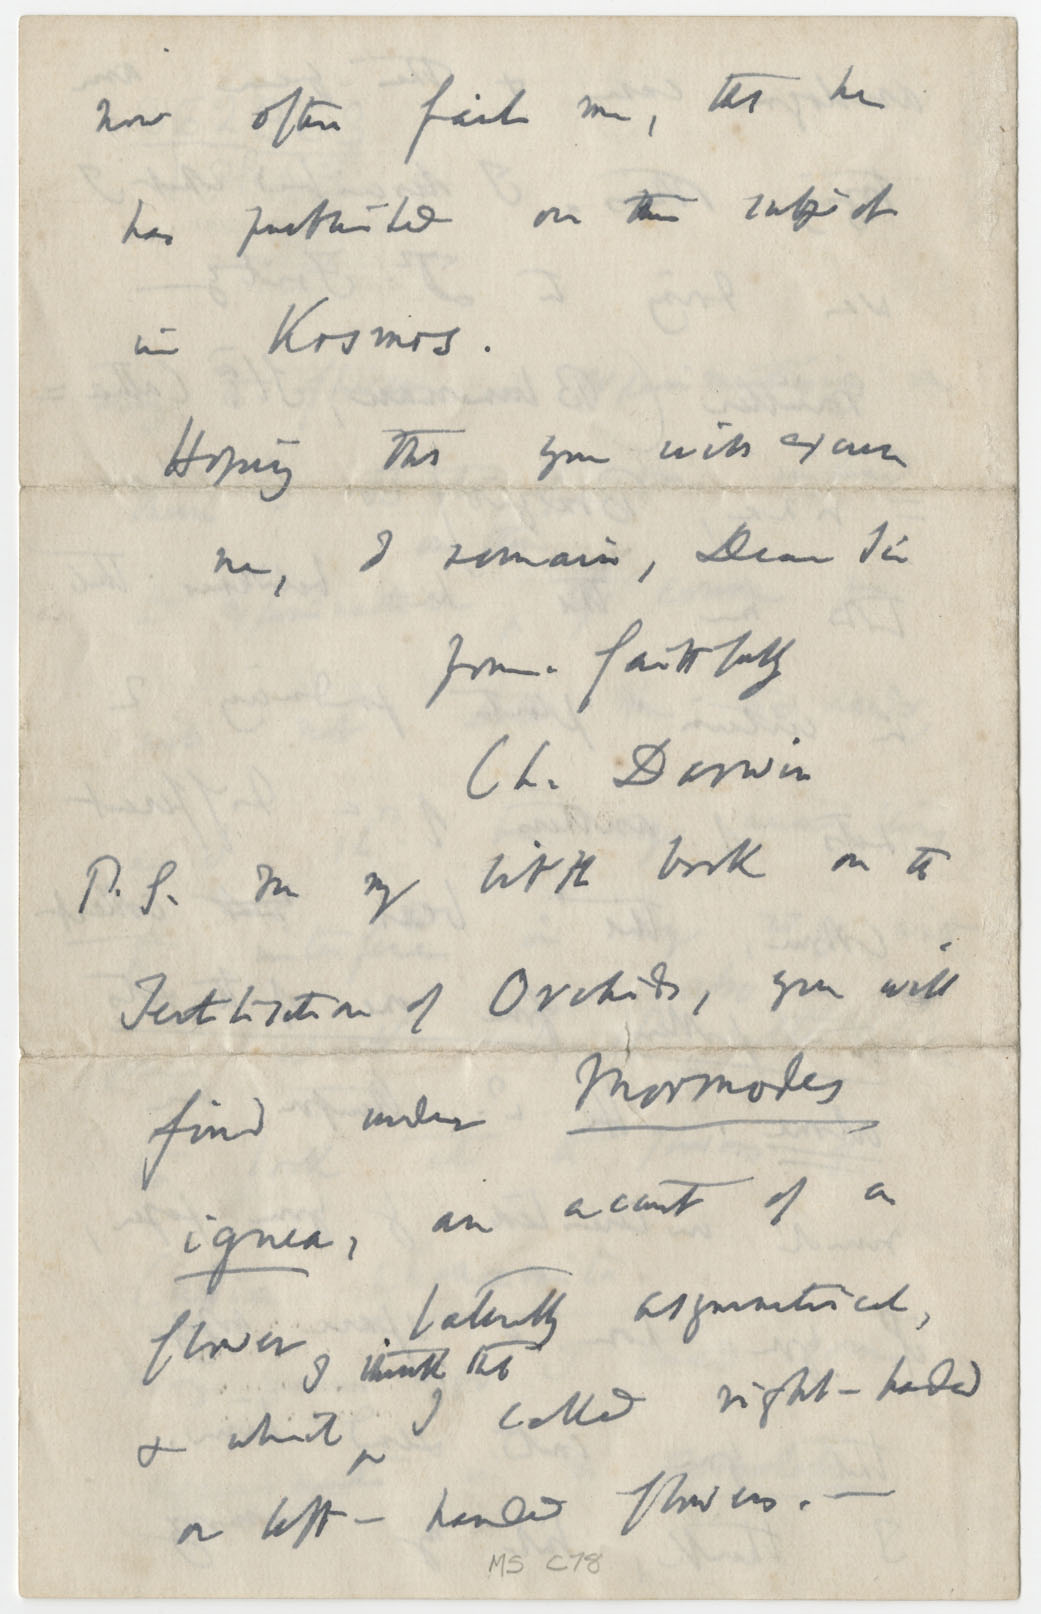 now often fails me, that he
has published on this subject
in Kosmos.
Hoping that you will excuse
me, I remain, Dear Sir
Yours faithfully
Ch. Darwin
P.S. In my little book on the
Fertilisation of Orchids, you will
find under Mormodes
ignea, an account of a
flower laterally asymmetrical,
I think that
& which I called right-handed
or left-handed flowers. —
MS C78